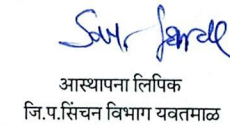 आस्थापना लिपिक
जि.प.सिंचन विभाग यवतमाळ